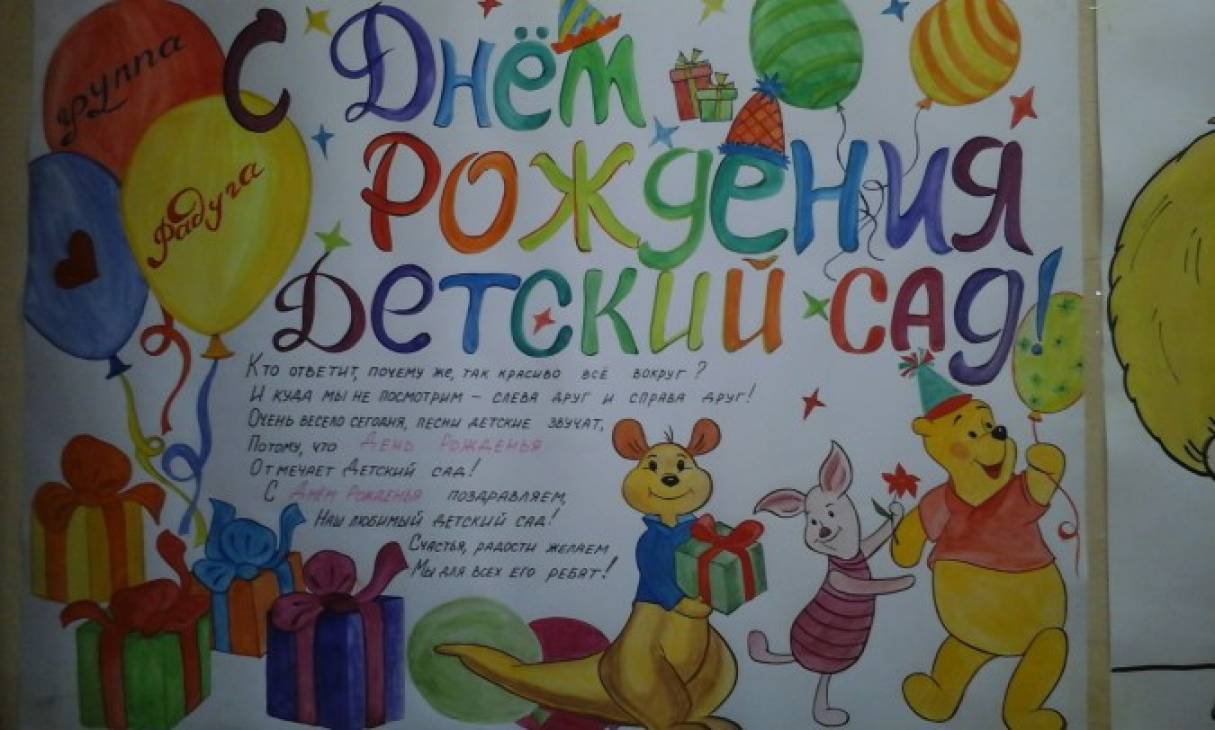 группа
Радуга
С Днём
Рождения
Детский сад!
Кто ответит, почему же, так красиво всё вокруг?
И куда мы не посмотрим – слева друг и справа друг!
Очень весело сегодня, песни детские звучат,
Потому, что День Рожденья
Отмечает Детский сад!
С Днём Рожденья поздравляем,
Наш любимый детский сад!
Счастья, радости желаем
Мы для всех его ребят!